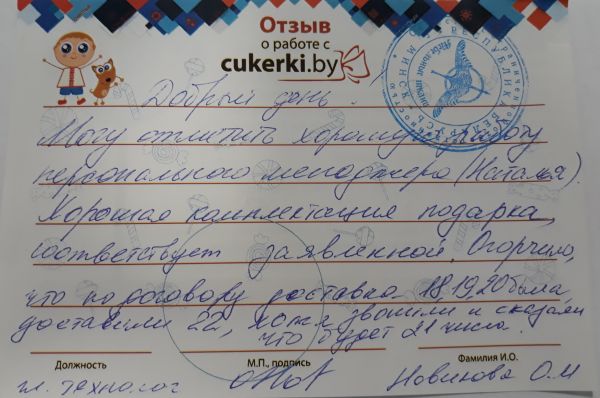 Отзыв
о работе с
cukerki.by
Добрый день.
Могу отметить хорошую работу
персонального менеджера (Наталья).
Хорошая комплектация подарка,
соответствует заявленной. Огорчило,
что по договору доставка 18,19,20 была
доставили 22, хотя звонили и сказали
что будет 21 числа.
Должность
М.П., подпись
Фамилия И.О.
гл. технолог
Новикова О.М
РЕСПУБЛИКА БЕЛАРУСЬ
МИНСК